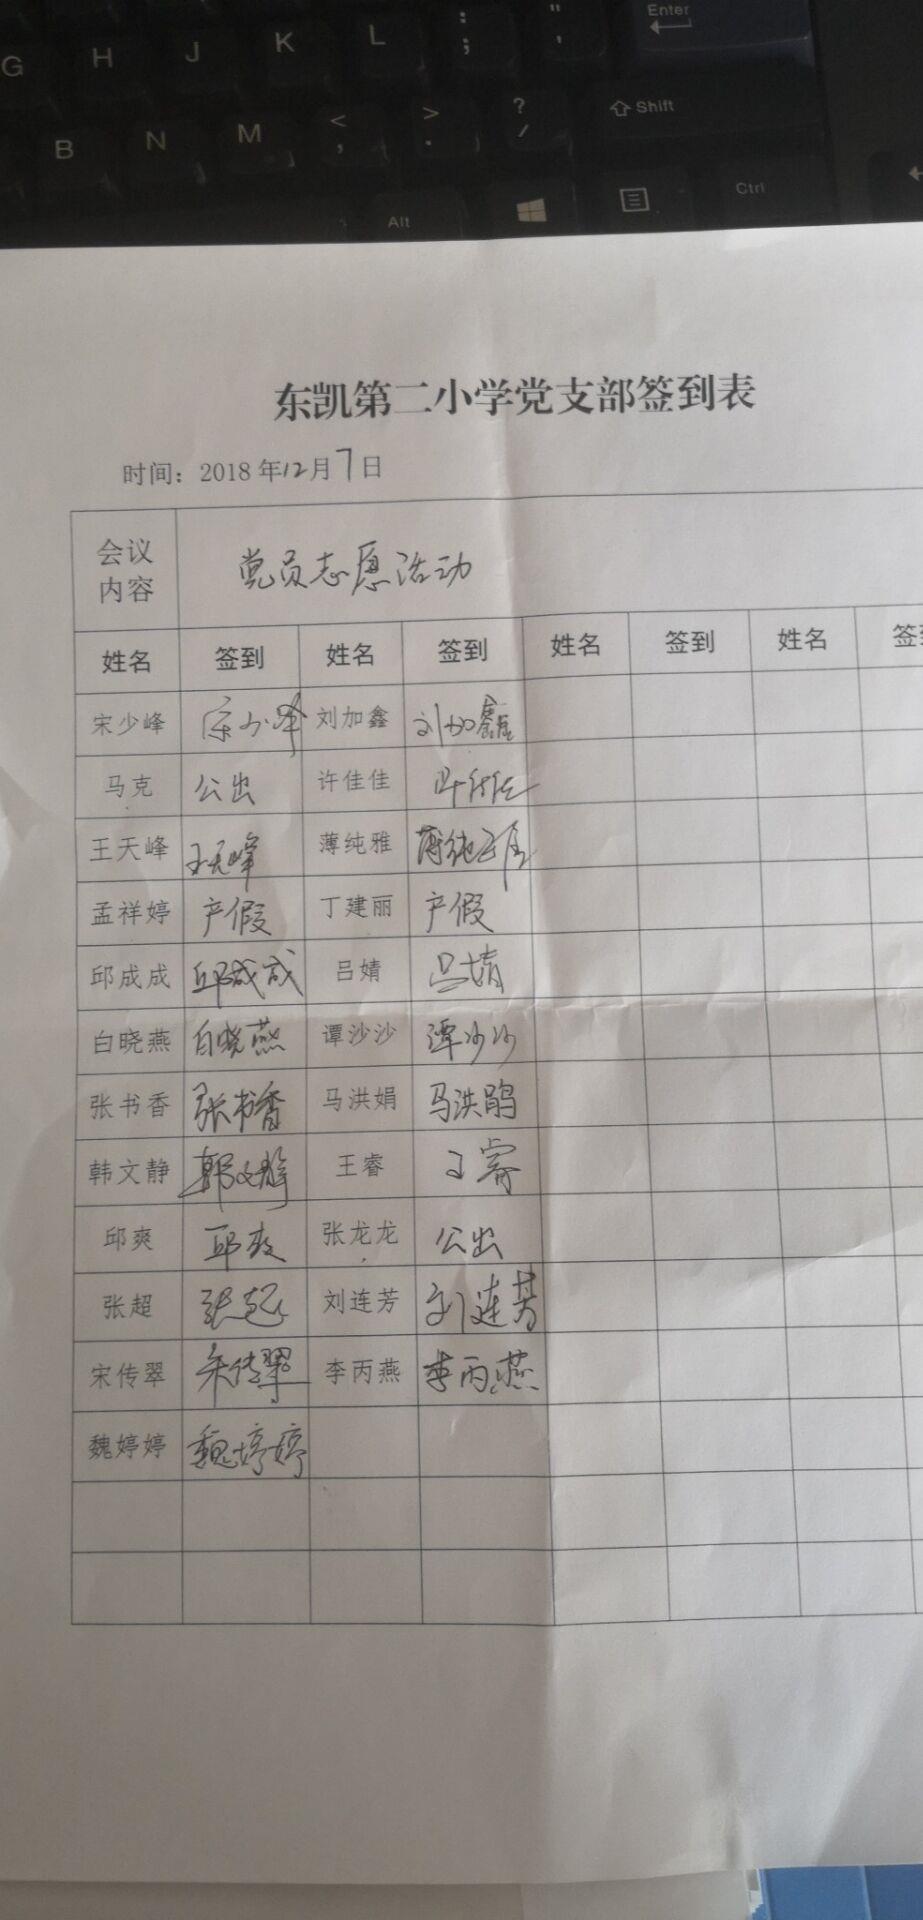 G H J K L : ; " ' Enter
B N M < , > . ? / Shift
Alt Ctrl
东凯第二小学党支部签到表
时间：2018年12月7日
会议内容 党员志愿活动
姓名 签到 姓名 签到 姓名 签到 姓名 签
宋少峰 宋少峰 刘加鑫 刘加鑫
马克 公出 许佳佳 许佳佳
王天峰 王天峰 薄纯雅 薄纯雅
孟祥婷 产假 丁建丽 产假
邱成成 邱成成 吕婧 吕婧
白晓燕 白晓燕 谭沙沙 谭沙沙
张书香 张书香 马洪娟 马洪娟
韩文静 韩文静 王睿 王睿
邱爽 邱爽 张龙龙 公出
张超 张超 刘连芳 刘连芳
宋传翠 宋传翠 李丙燕 李丙燕
魏婷婷 魏婷婷